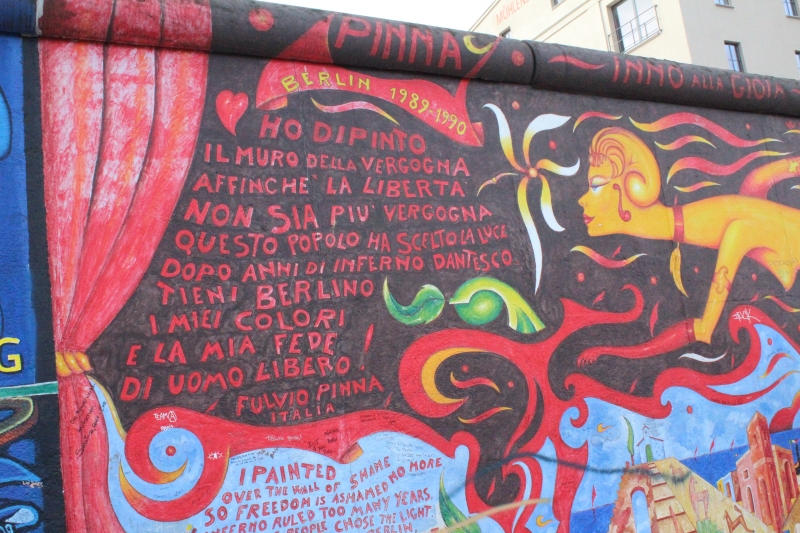 MÜHLENS
PINNA
INNO ALLA GIOIA
BERLIN 1989-1990
HO DIPINTO
IL MURO DELLA VERGOGNA
AFFINCHE' LA LIBERTA'
NON SIA PIU' VERGOGNA
QUESTO POPOLO HA SCELTO LA LUCE
DOPO ANNI DI INFERNO DANTESCO
TIENI BERLINO
I MIEI COLORI
E LA MIA FEDE
DI UOMO LIBERO!
FULVIO PINNA
ITALIA
I PAINTED
OVER THE WALL OF SHAME
SO FREEDOM IS ASHAMED NO MORE
INFERNO RULED TOO MANY YEARS.
PEOPLE CHOSE THE LIGHT.
BERLIN,
G
TEAM